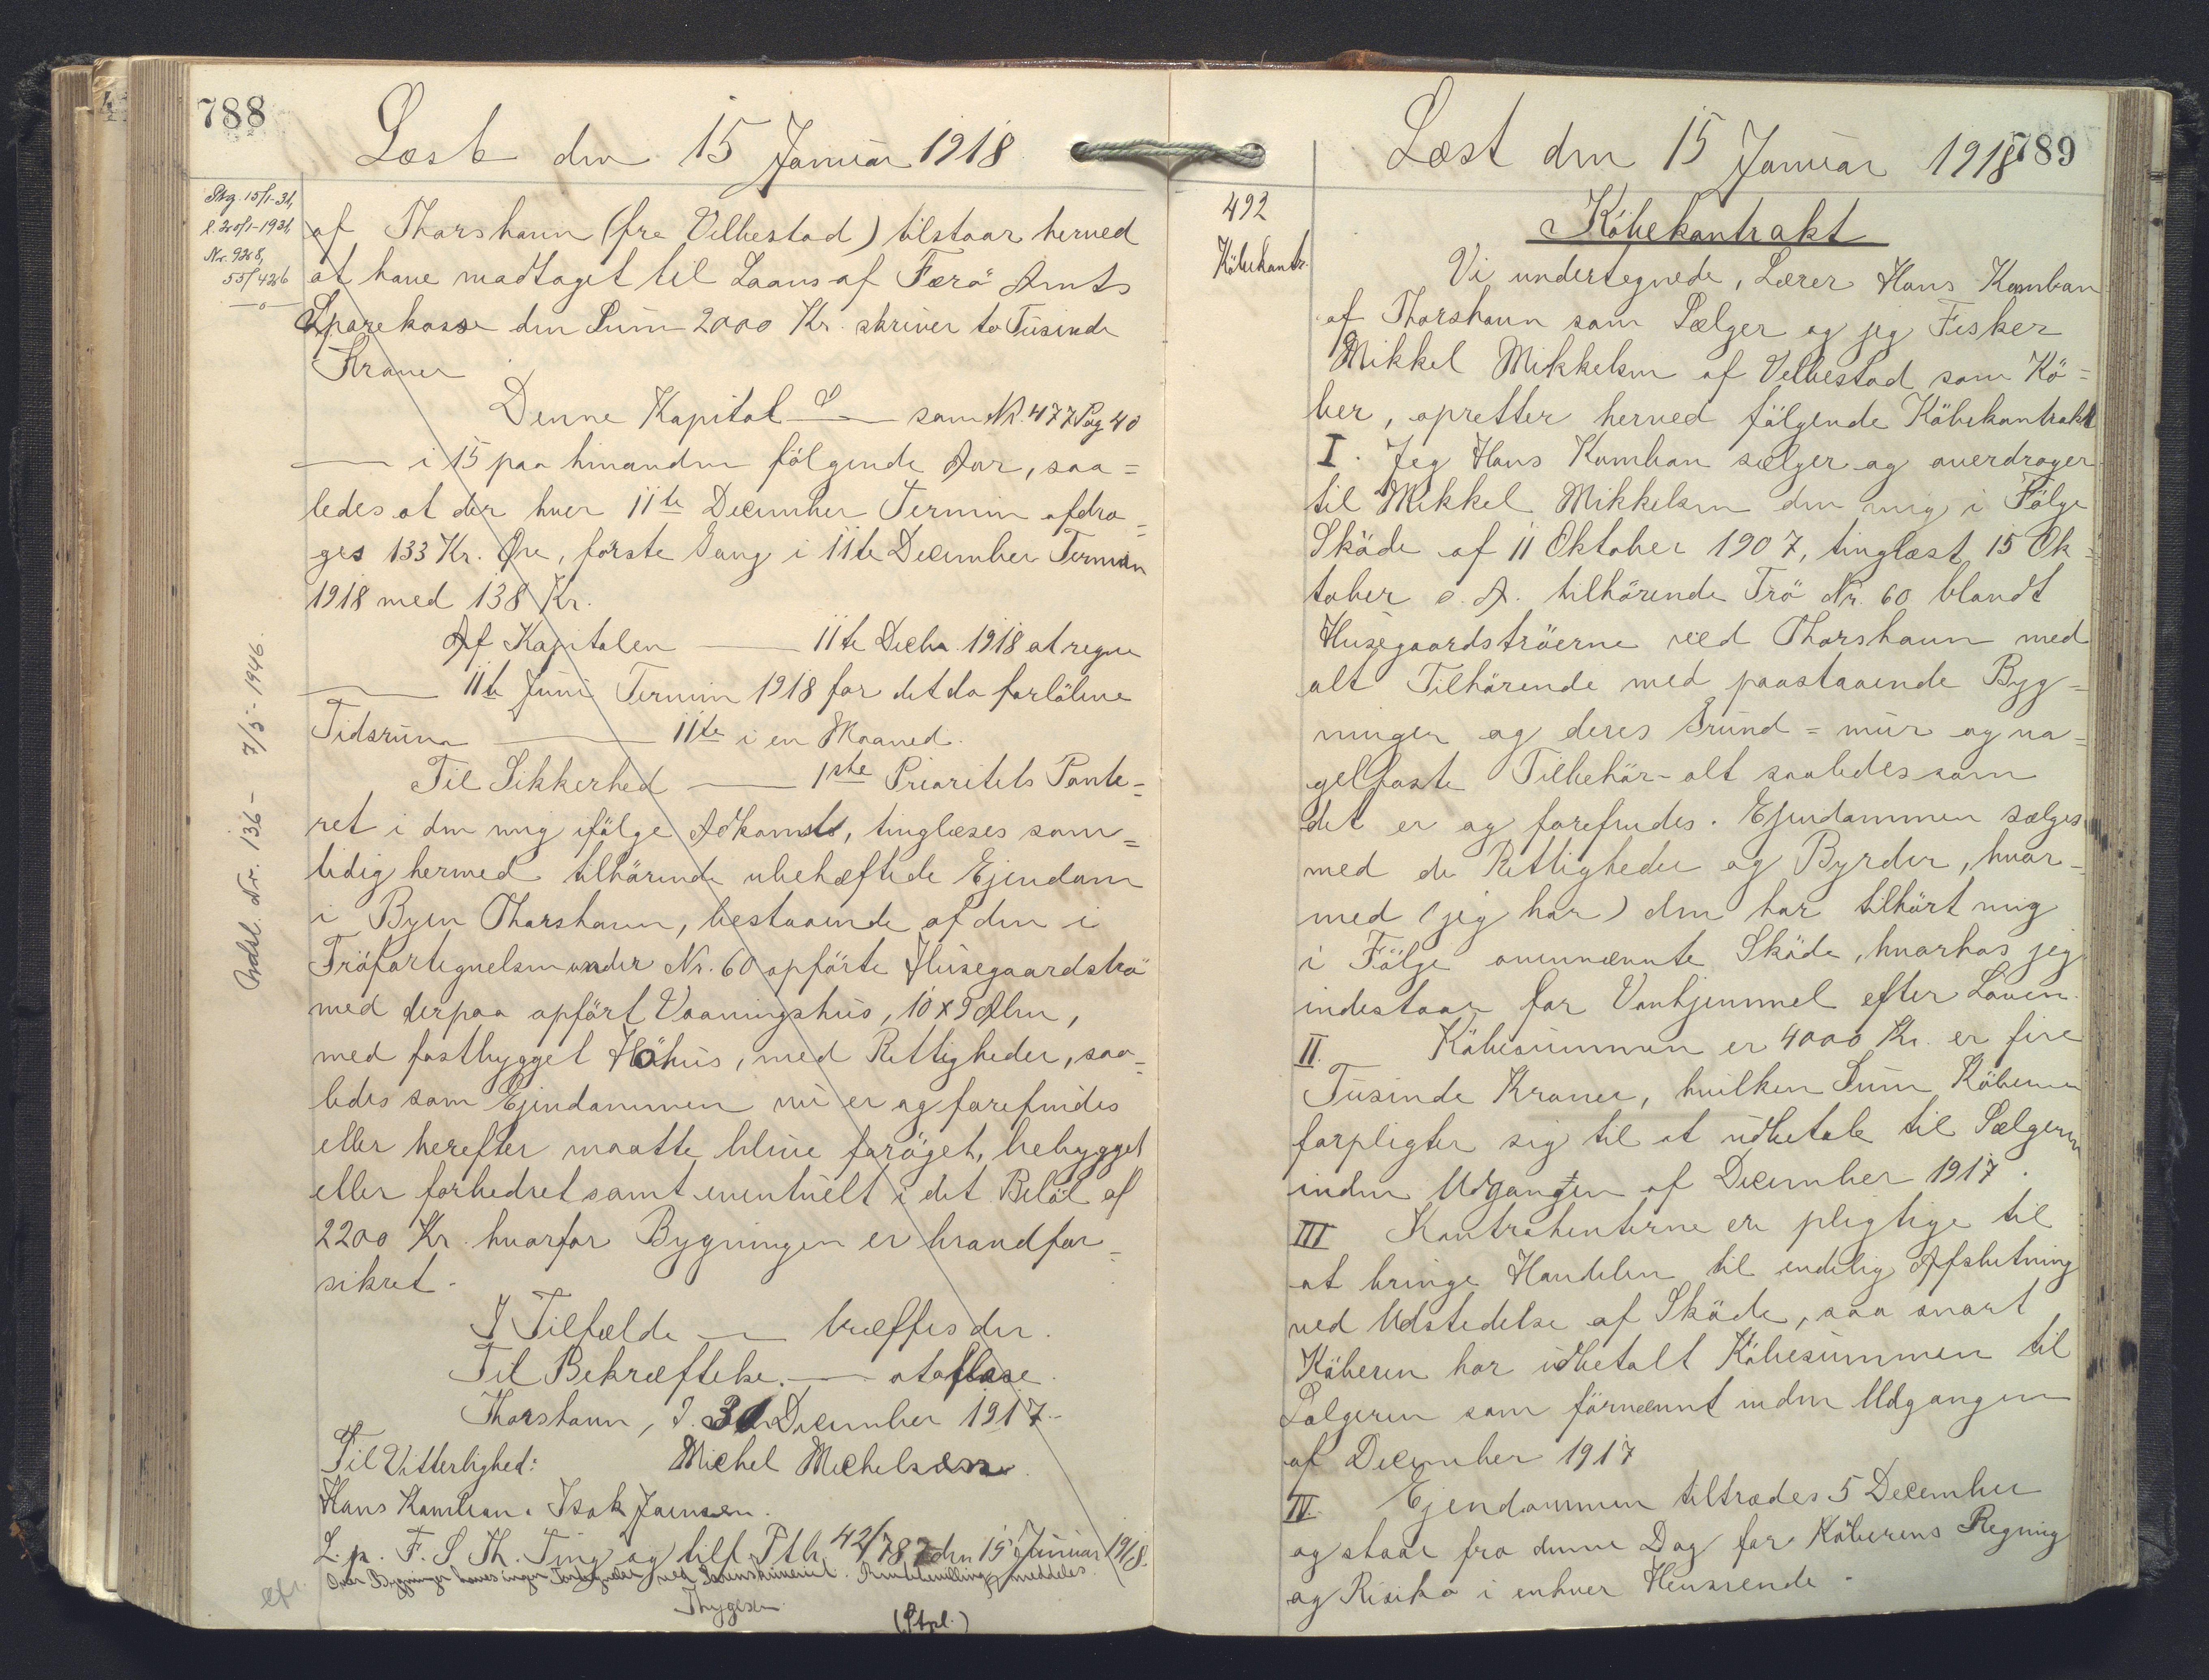 788
Læst den 15 Januar 1918
Aflyst 15/1-31,
l. 20/1-1931,
Nr. 928,
55/426
—o—
af Thorshavn (fra Velbestad) tilstaar herved
at have modtaget til Laans af Færö Amts
Sparekasse den Sum 2000 Kr. skriver to Tusinde
Kroner
Denne Kapital — som Nr. 477 Pag 40
— i 15 paa hinanden fölgende Aar, saa=
ledes at der hver 11te December Termin afdra=
ges 133 Kr. Öre, förste Gang i 11te December Termin
1918 med 138 Kr.
Af Kapitalen — 11te Decbr. 1918 at regne
— 11te Juni Termin 1918 for det da forlöbne
Tidsrum — 11te i en Maaned.
Til Sikkerhed — 1ste Prioritets Pante=
ret i den mig ifölge Adkomst, tinglæses sam=
tidig hermed tilhörende ubehæftede Ejendom
i Byen Thorshavn, bestaaende af den i
Tröfortegnelsen under Nr. 60 opförte Husegaardströ
med derpaa opfört Vaaningshus, 10 x 9 Alen,
med fastbygget Höhus, med Rettigheder, saa=
ledes som Ejendommen nu er og forefindes
eller herefter maatte blive foröget, bebygget
eller forbedret samt eventuelt i det Belöb af
2200 Kr. hvorfor Bygningen er brandfor=
sikret.
I Tilfælde — træffes der.
Til Bekræftelse. — at aflæse.
Thorshavn, d. 31 December 1917.
Til Vitterlighed: Michel Michelsen.
Hans Kamban. Isak Joensen.
L. p. F. S Th. Ting og tilf. Ptb. 42/787 den 15 Januar 1918.
Over Bygninger haves ingen ved Sorenskriveriet. meddeles.
Thygesen.
(Stpl.)
Ordsl. Nr. 136- 7/5-1946.
eft.
789
Læst den 15 Januar 1918
492
Köbekontr.
Köbekontrakt
Vi undertegnede, Lærer Hans Kamban
af Thorshavn som Sælger og jeg Fisker
Mikkel Mikkelsen af Velbestad som Kö=
ber, opretter herved fölgende Köbekontrakt
I. Jeg Hans Kamban sælger og overdrager
til Mikkel Mikkelsen den mig i Fölge
Sköde af 11 Oktober 1907, tinglæst 15 Ok=
tober s. A. tilhörende Trö Nr. 60 blandt
Husegaardströerne ved Thorshavn med
alt Tilhörende med paastaaende Byg=
ninger og deres Grund= mur og na=
gelfaste Tilbehör - alt saaledes som
det er og forefindes. Ejendommen sælges
med de Rettigheder og Byrder, hvor=
med (jeg har) den har tilhört mig
i Fölge ovennævnte Sköde, hvorhos jeg
indestaar for Vanhjemmel efter Loven.
II. Köbesummen er 4000 Kr. er fire
Tusinde Kroner, hvilken Sum Köberen
forpligter sig til at udbetale til Sælgeren
inden Udgangen af December 1917.
III Kontrahenterne ere pligtige til
at bringe Handelen til endelig Afslutning
ved Udstedelse af Sköde, saa snart
Köberen har udbetalt Köbesummen til
Sælgeren som förnævnt inden Udgangen
af December 1917
IV. Ejendommen tiltrædes 5 December
og staar fra denne Dag for Köberens Regning
og Risiko i enhver Henseende.